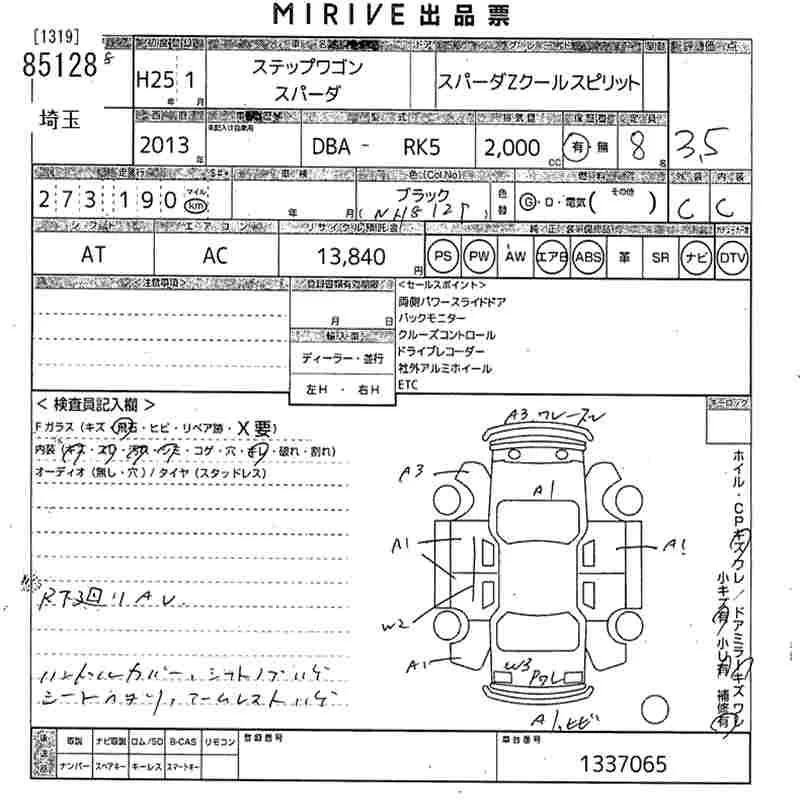 MIRIVE 出品票
[1319]
85128 8
埼玉
H25 1
年 月
ステップワゴン
スパーダ
スパーダZクールスピリット
3,5
2013 年
DBA - RK5
2,000 CC
有・無
8 名
273190
マイル
km
車 検
年 月
色(Col.No)
ブラック
色替
G・D・電気( その他 )
外装 内装
C C
シフト
エアコン
リサイクル預託金
AT
AC
13,840 円
PS PW AW エアB ABS 革 SR ナビ DTV
<注意事項>
登録書類有効期限
月 日
輸入車
ディーラー・並行
左H ・ 右H
<セールスポイント>
両側パワースライドドア
バックモニター
クルーズコントロール
ドライブレコーダー
社外アルミホイール
ETC
< 検査員記入欄 >
Fガラス(キズ・飛石・ヒビ・リペア跡・X要)
内装(キズ・スリ・汚れ・シミ・コゲ・穴・キレ・破れ・割れ)
オーディオ(無し・穴)/タイヤ(スタッドレス)
ハンドルカバー、シフトノブハゲ
A3
A1
A1
A1
W2
A1
W3
A1,ヒビ
ホイル・CPキズワレ/ドアミラーキズワレ
小キズ有/小U有 補修有
後送品
取説 ナビ取説 ロム/SD B-CAS リモコン
ナンバー スペアキー キーレス スマートキー
登録番号
車台番号
1337065